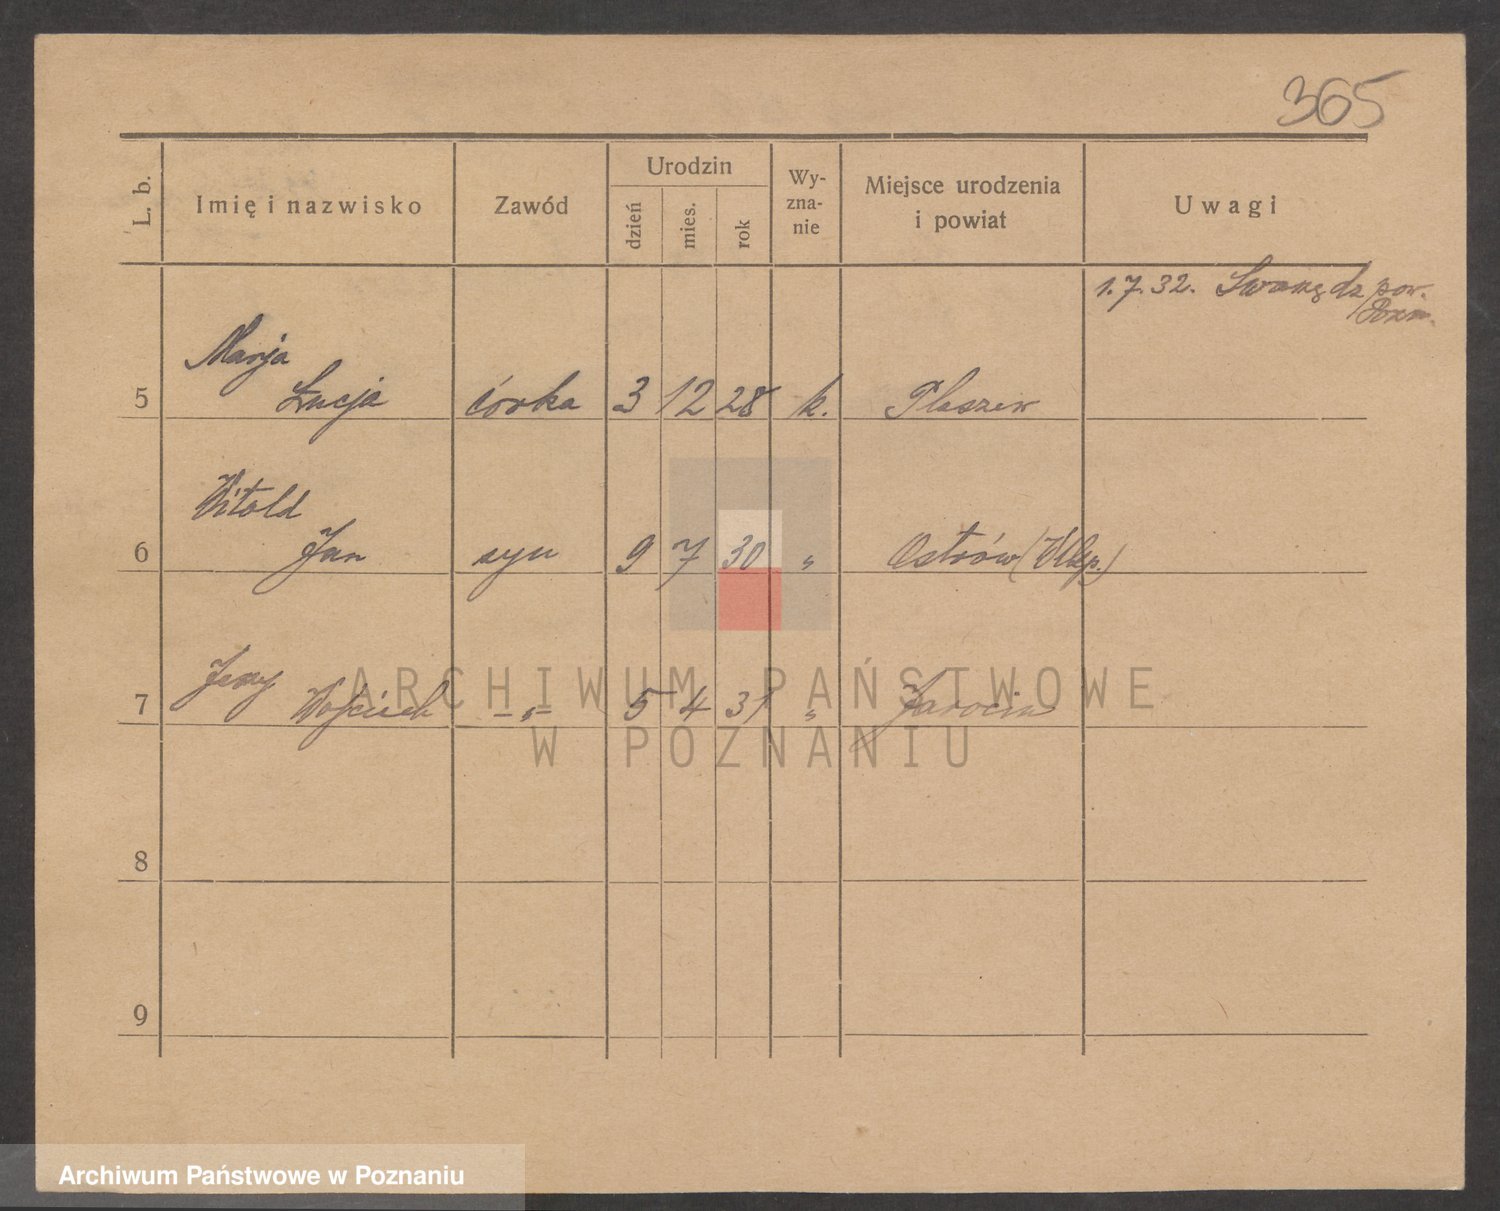 365
L. b.
Imię i nazwisko
Zawód
Urodzin
dzień
mies.
rok
Wy-
zna-
nie
Miejsce urodzenia
i powiat
Uwagi
1.7.32. Swarzędz pow.
Pozn.
Marja
5 Łucja córka 3 12 28 k. Pleszew
Witold
6 Jan syn 9 7 30 „ Ostrów (Wlkp.)
Jerzy
7 Wojciech –„– 5 4 31 „ Jarocin
ARCHIWUM PAŃSTWOWE
W POZNANIU
8
9
Archiwum Państwowe w Poznaniu